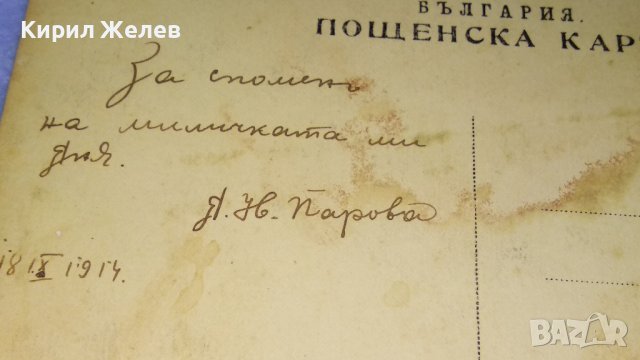 Кирил Желев
БЪЛГАРИЯ.
ПОЩЕНСКА КАР
За споменъ
на миличката ми
Дня.
Д. Ив. Парова
18 IX 1914.
BAZAR